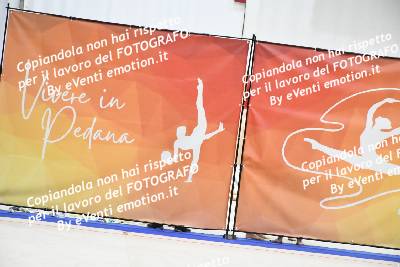 Copiandola non hai rispetto
per il lavoro del FOTOGRAFO
By eVenti emotion.it
Copiandola non hai rispetto
per il lavoro del FOTOGRAFO
By eVenti emotion.it
Vivere in
Pedana
Copiandola non hai rispetto
per il lavoro del FOTOGRAFO
By eVenti emotion.it
Copiandola non hai rispetto
per il lavoro del FOTOGRAFO
By eVenti emotion.it